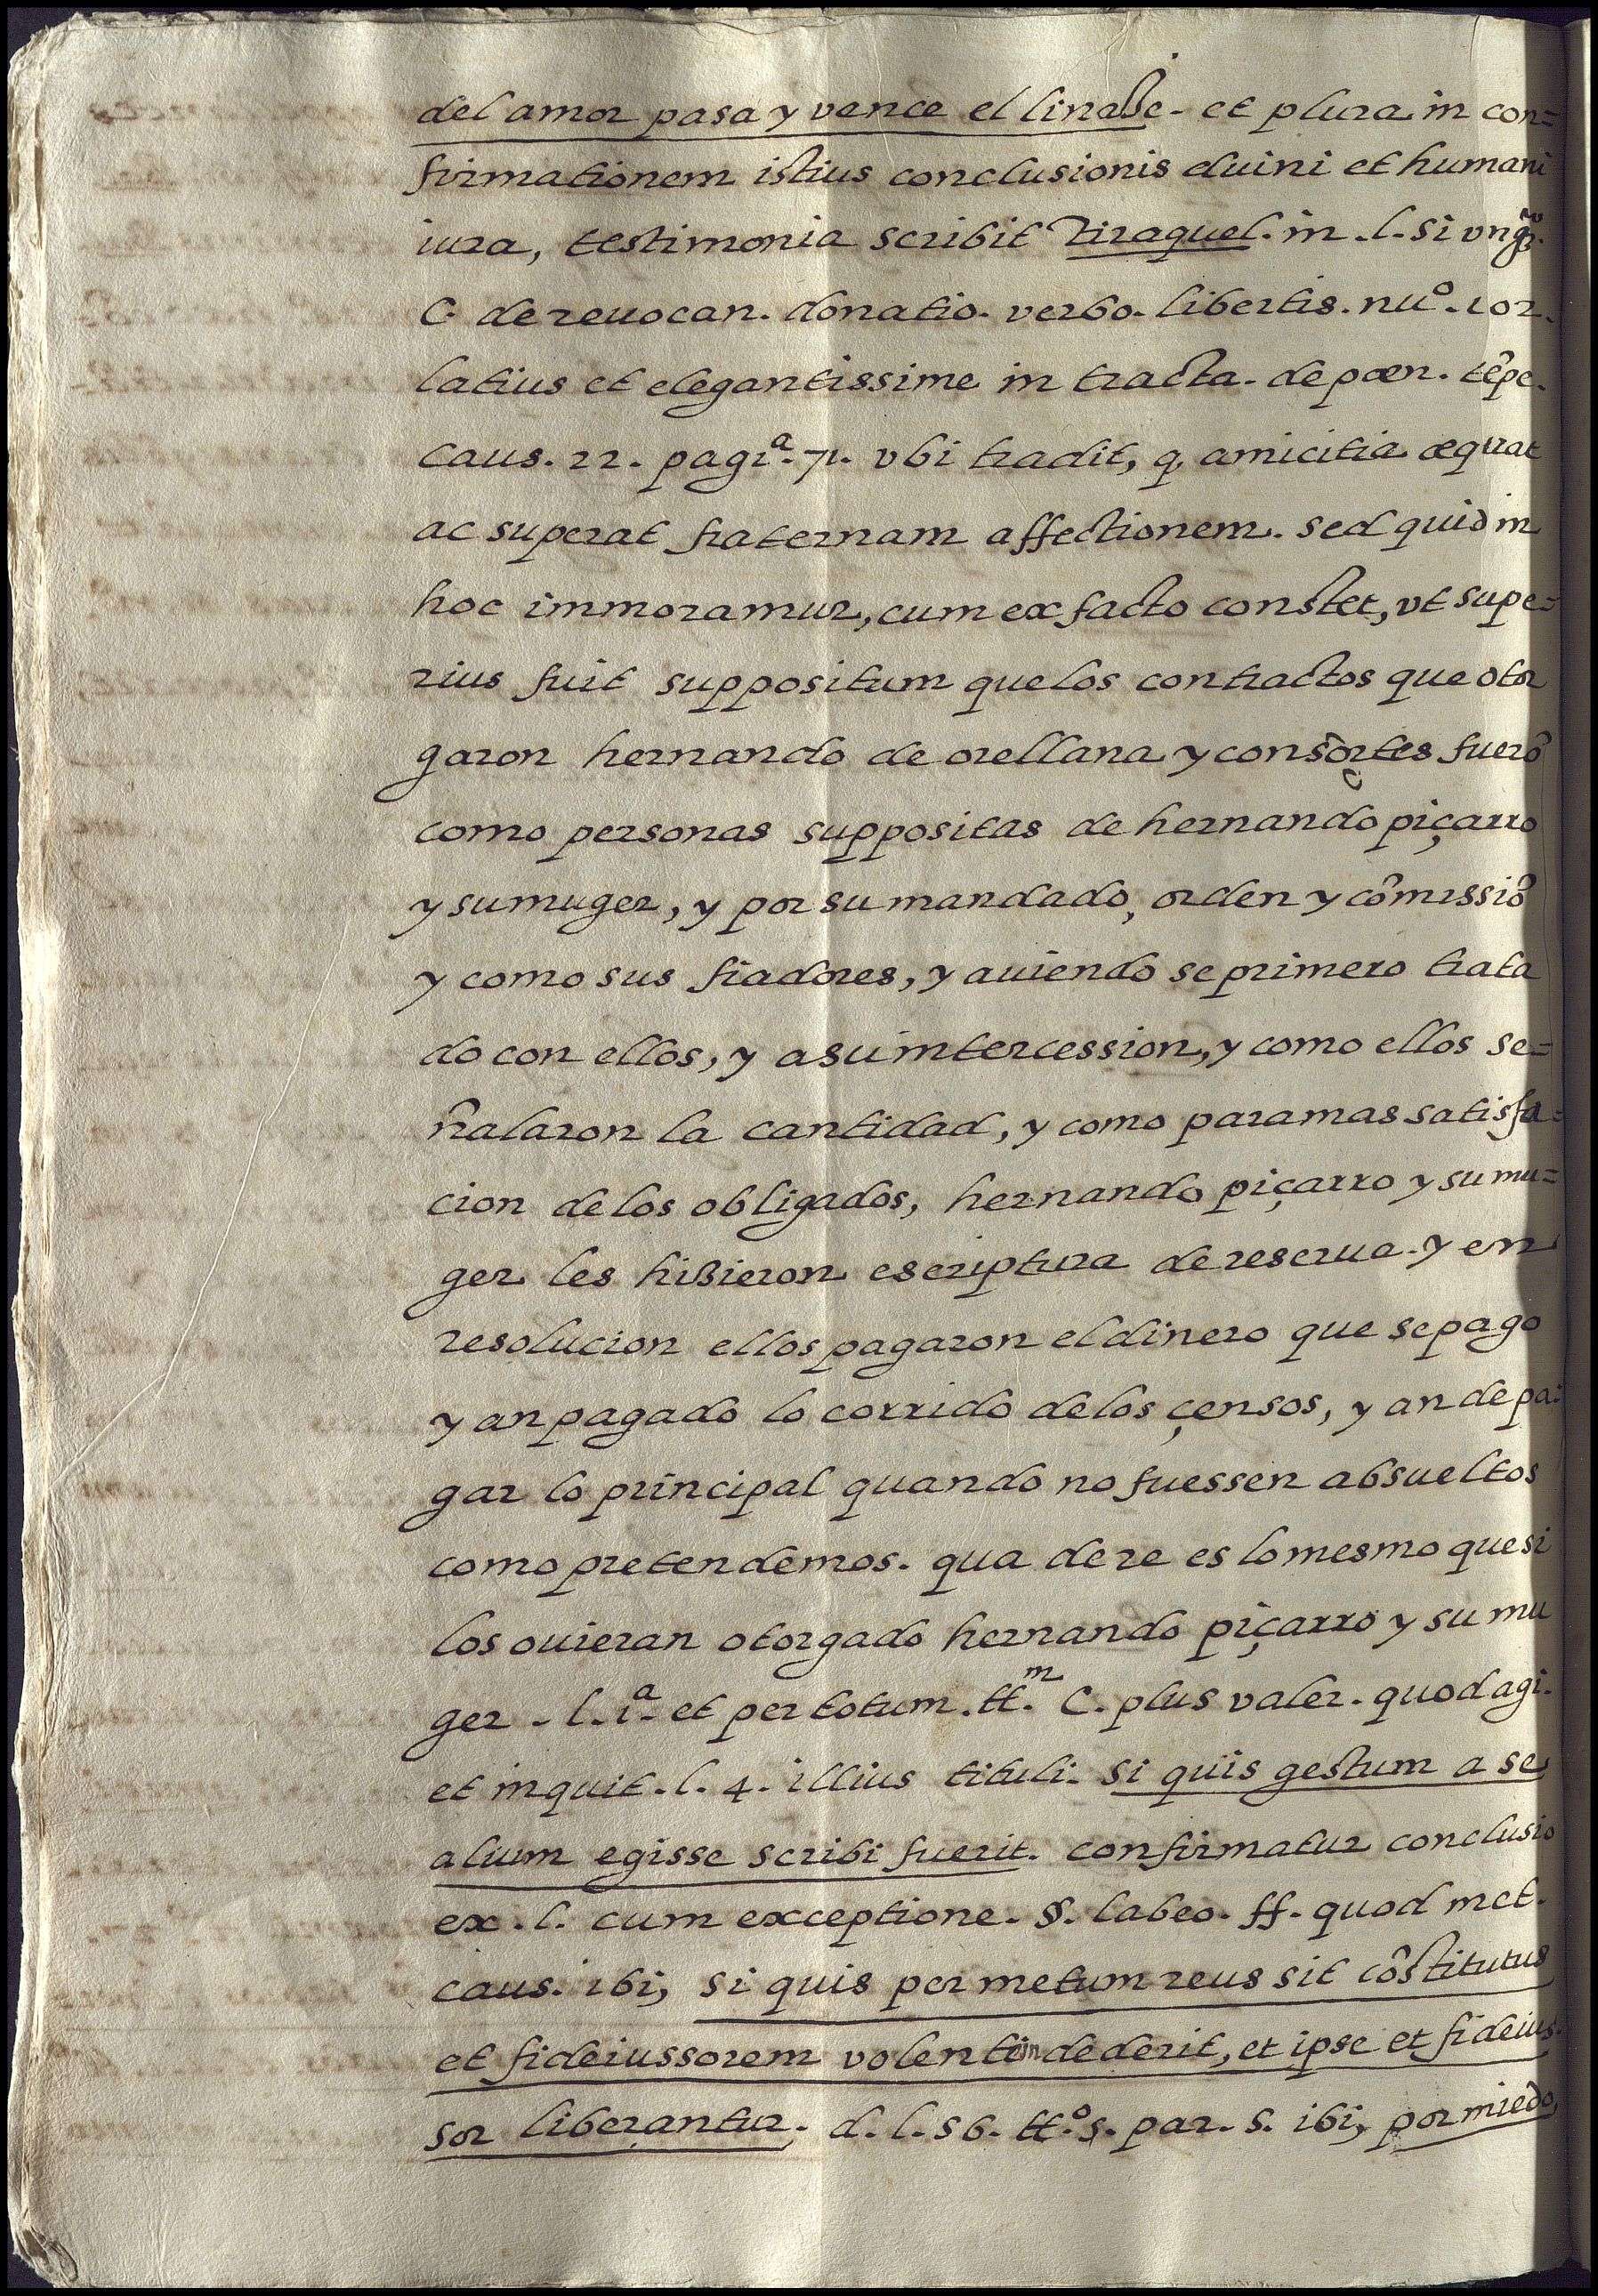 del amor pasa y vence el linaje - et plura in con=
firmationem istius conclusionis diuini et humani
iura, testimonia scribit Tiraquel. in .l. si vnqȝ̃.
C. de reuocan. donatio. verbo. libertis. nuº. 102.
latius et elegantissime in tracta. de pœn. tẽpe.
caus. 22. pagiª. 71. vbi tradit, q̣ amicitia æquat
ac superat fraternam affectionem. sed quid in
hoc immoramur, cum ex facto constet, vt supe=
rius fuit suppositum que los contractos que otor
garon hernando de orellana y consortes fuerõ
como personas suppositas de hernando piçarro
y su muger, y por su mandado, orden y cõmissiõ
y como sus fiadores, y auiendo se primero trata
do con ellos, y a su intercession, y como ellos se=
ñalaron la cantidad, y como para mas satisfa=
cion de los obligados, hernando piçarro y su mu=
ger les hizieron escriptura de reserua. y en
resolucion ellos pagaron el dinero que se pago
y an pagado lo corrido de los çensos, y an de pa=
gar lo principal quando no fuessen absueltos
como pretendemos. qua de re es lo mesmo que si
los ouieran otorgado hernando piçarro y su mu
ger - l. 1ª. et per totum. tt.ᵐ C. plus valer. quod agi.
et inquit .l. 4. illius tituli. si quis gestum a se
alium egisse scribi fuerit. confirmatur conclusio
ex .l. cum exceptione. §. labeo. ff. quod met.
caus. ibi, si quis per metum reus sit cõstitutus
et fideiussorem volentem dederit, et ipse et fideius.
sor liberantur. d. l. 56. tt.º 5. par. 5. ibi, por miedo,